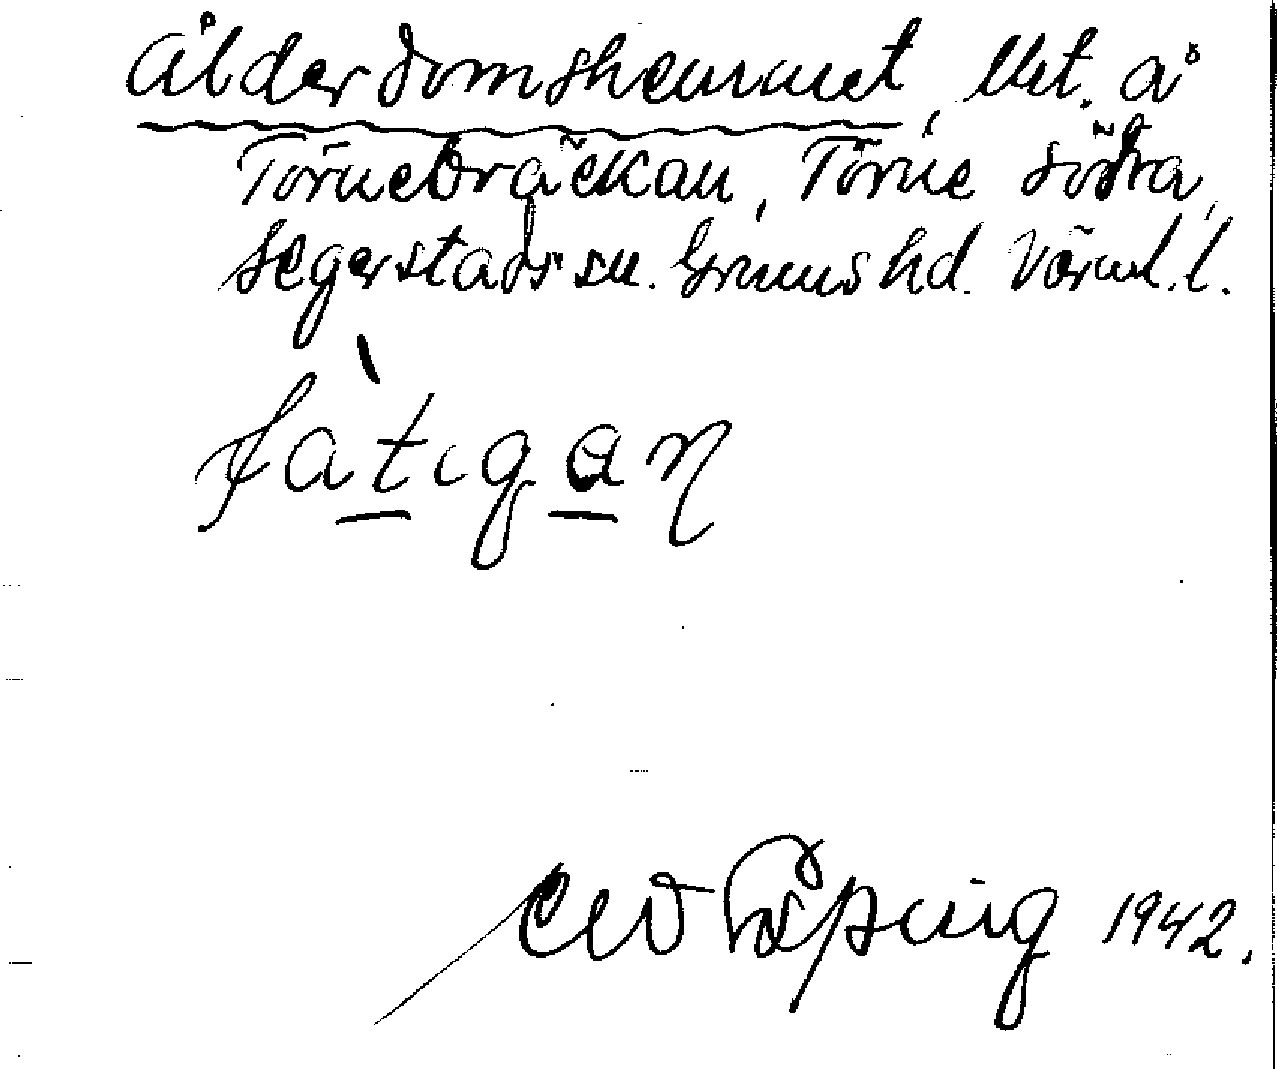 Ålderdomshemmet, bet. å
Törnebräckan, Törne södra,
Segerstads sn. Grums hd. Värml. l.
fàtigan
1942.